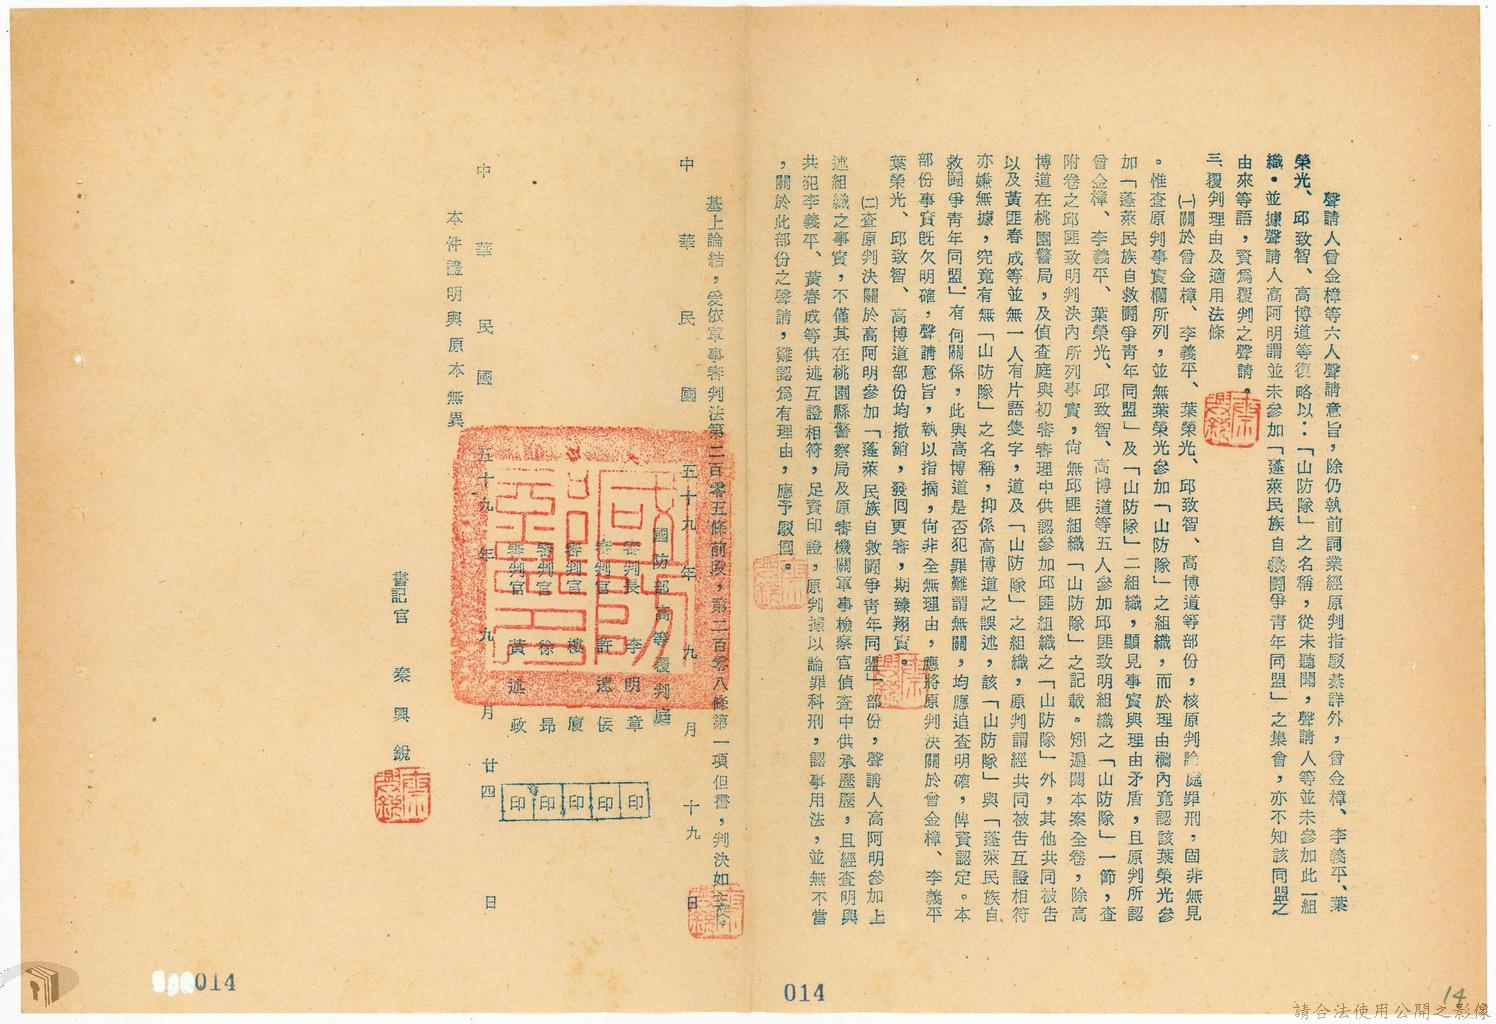 聲請人曾金樟等六人聲請意旨，除仍執前詞業經原判指駁綦詳外，曾金樟、李義平、葉
榮光、邱致智、高博道等復略以：「山防隊」之名稱，從未聽聞，聲請人等並未參加此一組
織。並據聲請人高阿明謂並未參加「蓬萊民族自救鬪爭青年同盟」之集會，亦不知該同盟之
由來等語，資為覆判之聲請。
三、覆判理由及適用法條
㈠關於曾金樟、李義平、葉榮光、邱致智、高博道等部份，核原判論處罪刑，固非無見
。惟查原判事實欄所列，並無葉榮光參加「山防隊」之組織，而於理由欄內竟認該葉榮光參
加「蓬萊民族自救鬪爭青年同盟」及「山防隊」二組織，顯見事實與理由矛盾，且原判所認
曾金樟、李義平、葉榮光、邱致智、高博道等五人參加邱匪致明組織之「山防隊」一節，查
附卷之邱匪致明判決內所列事實，尚無邱匪組織「山防隊」之記載。矧遍閱本案全卷，除高
博道在桃園警局，及偵查庭與初審審理中供認參加邱匪組織之「山防隊」外，其他共同被告
以及黃匪春成等並無一人有片語隻字，道及「山防隊」之組織，原判謂經共同被告互證相符
亦嫌無據，究竟有無「山防隊」之名稱，抑係高博道之誤述，該「山防隊」與「蓬萊民族自
救鬪爭青年同盟」有何關係，此與高博道是否犯罪難謂無關，均應追查明確，俾資認定。本
部份事實既欠明確，聲請意旨，執以指摘，尚非全無理由，應將原判決關於曾金樟、李義平
葉榮光、邱致智、高博道部份均撤銷，發回更審，期臻翔實。
㈡查原判決關於高阿明參加「蓬萊民族自救鬪爭青年同盟」部份，聲請人高阿明參加上
述組織之事實，不僅其在桃園縣警察局及原審機關軍事檢察官偵查中供承歷歷，且經查明與
共犯李義平、黃春成等供述互證相符，足資印證，原判據以論罪科刑，認事用法，並無不當
，關於此部份之聲請，難認為有理由，應予駁回。
基上論結，爰依軍事審判法第二百零五條前段，第二百零八條第一項但書，判決如主文。
中華民國五十九年九月十九日
國防部高等覆判庭
審判長 李明章
審判官 許遠佞
審判官 樓廈
審判官 徐昂
審判官 黃述政
印 印 印 印 印
中華民國五十九年九月廿四日
本件證明與原本無異
書記官 秦興銳
014
014
14
請合法使用公開之影像